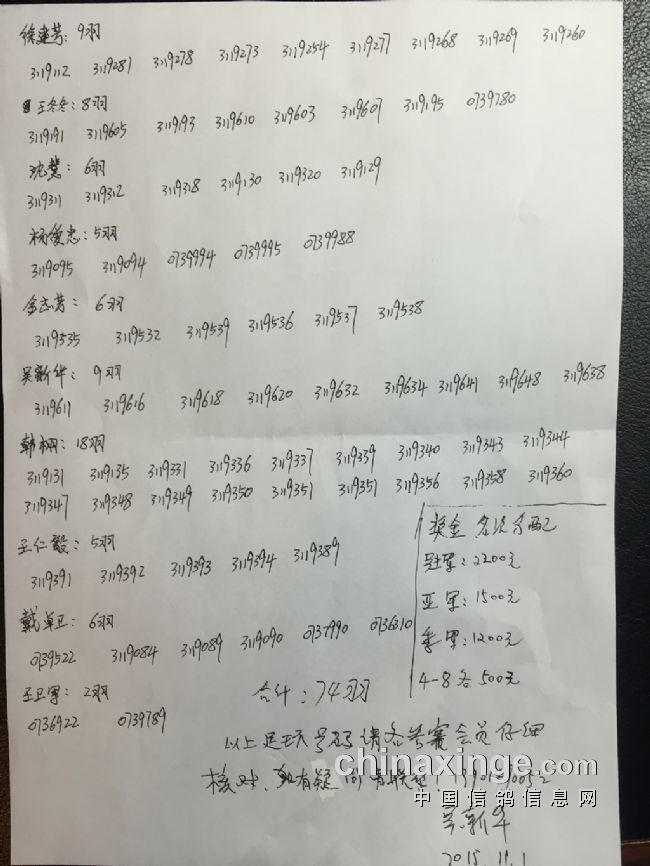 徐建芳：9羽
3119112 3119281 3119278 3119273 3119254 3119277 3119268 3119269 3119260
王冬冬：8羽
3119191 3119605 3119193 3119610 3119603 3119607 3119195 0739780
沈慧：6羽
3119311 3119312 3119318 3119130 3119320 3119129
杨俊忠：5羽
3119095 3119094 0739994 0739995 0739988
金志芳：6羽
3119535 3119532 3119539 3119536 3119537 3119538
吴新华：9羽
3119611 3119616 3119618 3119620 3119632 3119634 3119641 3119648 3119638
韩栩：18羽
3119131 3119135 3119331 3119336 3119337 3119339 3119340 3119343 3119344
3119347 3119348 3119349 3119350 3119351 3119351 3119356 3119358 3119360
王仁毅：5羽
3119391 3119392 3119393 3119394 3119389
戴卓卫：6羽
0739522 3119084 3119089 3119090 0737990 0736310
王卫军：2羽
0736922 0739789
奖金名次分配
冠军：2200元
亚军：1500元
季军：1200元
4-8各500元
合计：74羽
以上足环号码请各参赛会员仔细
核对、如有疑问请联系：
吴新华
2015.11.1
chinaxinge.com
中国信鸽信息网